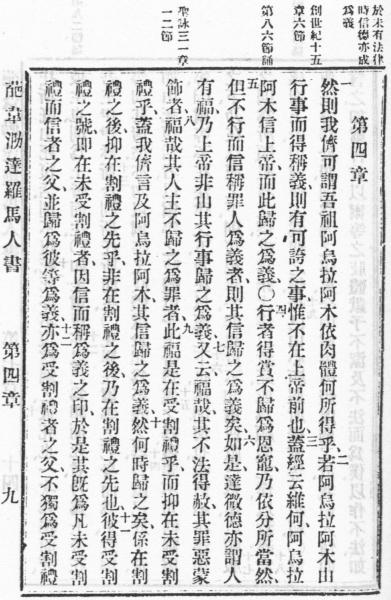 於未有法律
時信德亦成
爲義
創世紀十五
章六節
第八六節誦
聖詠三一章
一二節
第四章
一然則我儕可謂吾祖阿烏拉阿木依肉體何所得乎、二若阿烏拉阿木由
行事而得稱義、則有可誇之事、惟不在上帝前也、三蓋經云、維何阿烏拉
阿木信上帝、而此歸之爲義、〇四行者得賞、不歸爲恩寵、乃依分所當然、
五但不行而信稱罪人爲義者、則其信歸之爲義矣、六如是、達微德亦謂人
有福、乃上帝非由其行事歸之爲義、七又云、福哉、其不法得赦、其罪惡蒙
節者、八福哉、其人主不歸之爲罪者、九此福是在受割禮乎、而抑在未受割
禮乎、蓋我儕言及阿烏拉阿木、其信歸之爲義、十然何時歸之矣、係在割
禮之後、抑在割禮之先乎、非在割禮之後、乃在割禮之先也、十一彼得受割
禮之號、卽在未受割禮者、因信而稱爲義之印、於是其旣爲凡未受割
禮而信者之父、並歸爲彼等爲義、十二亦爲受割禮者之父、不獨爲受割禮
葩韋泐達羅馬人書 第四章 九